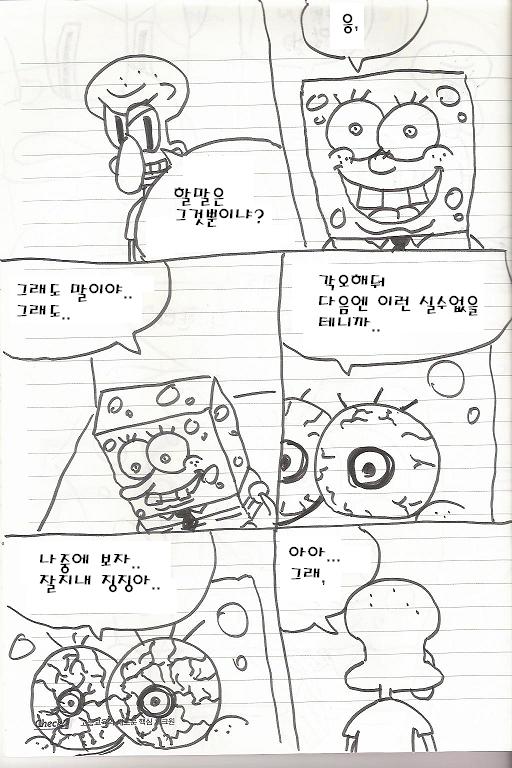 할말은
그것뿐이냐?
응,
그래도 말이야..
그래도..
각오해둬
다음엔 이런 실수없을
테니까..
나중에 보자..
잘지내 징징아..
아아...
그래,